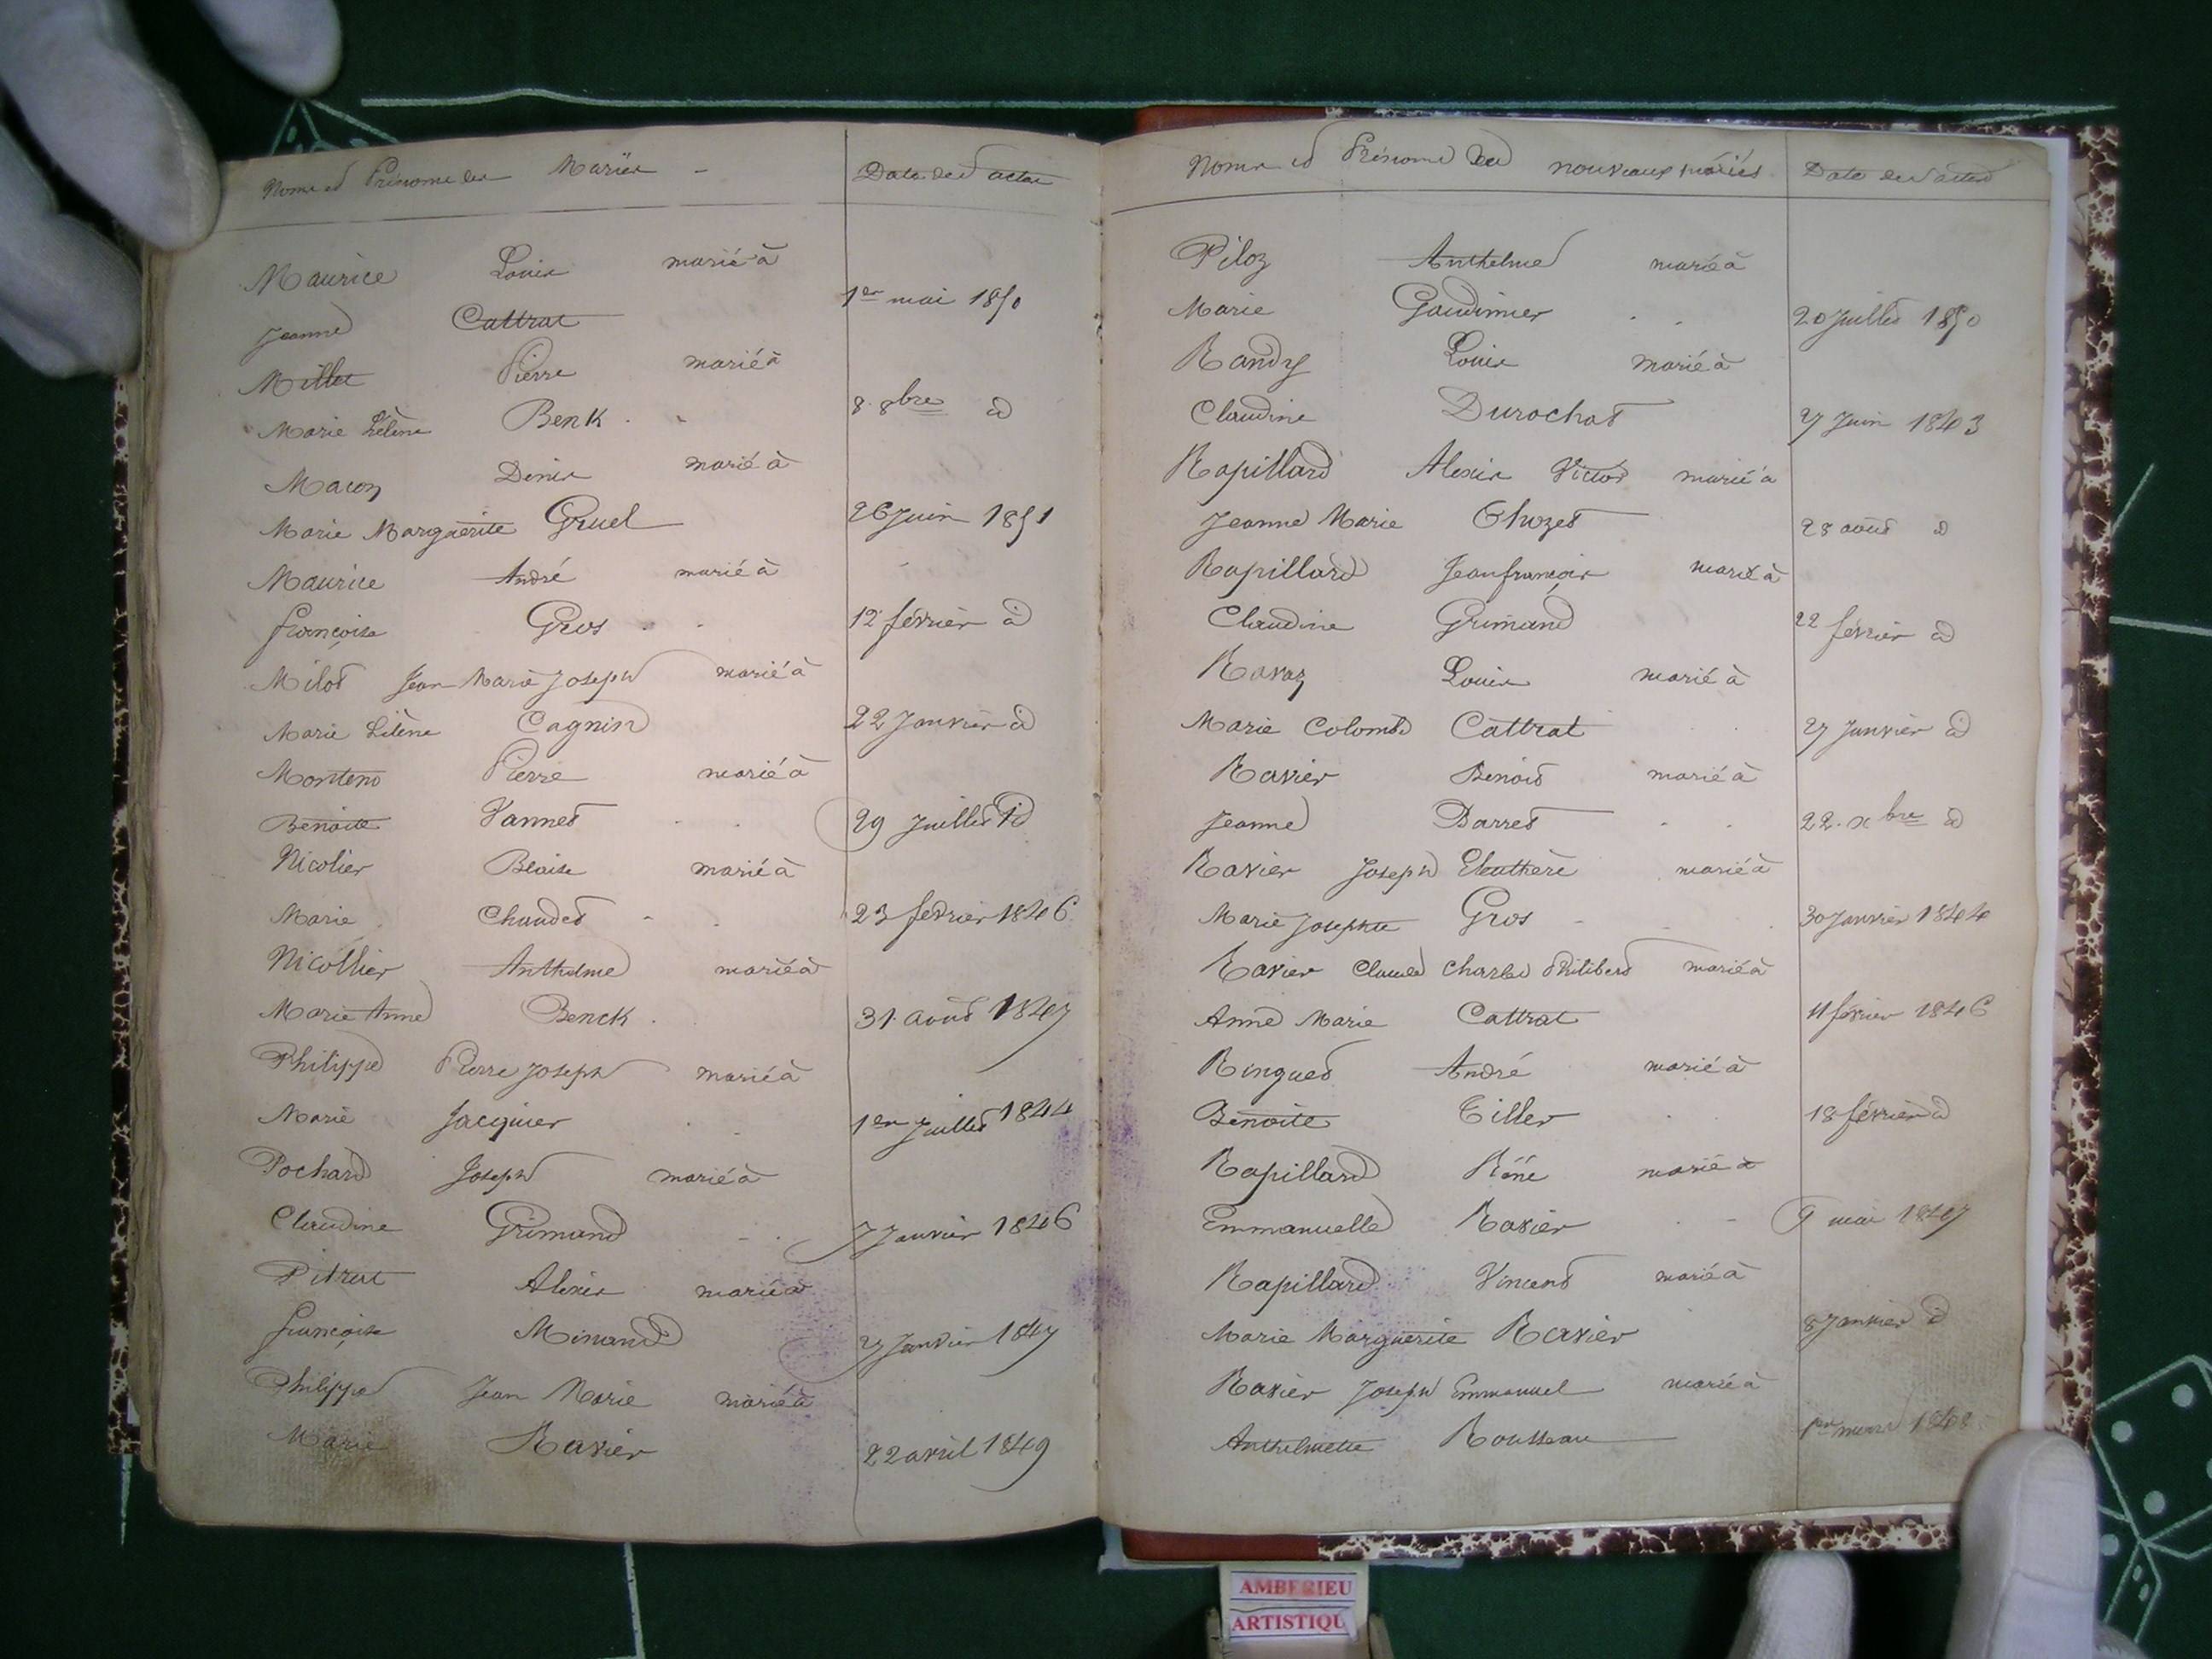 Noms et Prénoms des Mariés - Date des actes
Maurice Louis marié à
Jeanne Cattrat 1er mai 1850
Millet Pierre marié à
Marie Hélène Benk 8 8bre id
Macon Denis marié à
Marie Marguerite Gruel 26 Juin 1851
Maurice André marié à
françoise Gros 12 février id
Milot Jean Marie Joseph marié à
Marie Hélène Cagnin 22 Janvier id
Pierre marié à
Benoite Vannet 29 Juillet id
Nicolier Blaise marié à
Marie Chaudet 23 février 1846
Nicollier Anthelme marié à
Marie Anne Benck 31 août 1847
Philippe Pierre Joseph marié à
Marie Jacquier 1er Juillet 1844
Pochard Joseph marié à
Claudine Grimand 7 Janvier 1846
Pitrat Alexis marié à
françoise Minand 27 Janvier 1847
Philippe Jean Marie marié à
Marie Ravier 22 avril 1849
Noms et Prénoms des nouveaux mariés Date des actes
Piloz Anthelme marié à
Marie Gaudinier 20 Juillet 1850
Randy Louis marié à
Claudine Durochat 27 Juin 1843
Rapillard Alexis Victor marié à
Jeanne Marie 28 août id
Rapillard Jeanfrançois marié à
Claudine Grimand 22 février id
Ravaz Louis marié à
Marie Colombe Cattrat 27 Janvier id
Ravier Benoit marié à
Jeanne Barret 22 xbre id
Ravier Joseph Eleuthère marié à
Marie Josephte Gros 30 Janvier 1844
Ravier Claude Charles Philibert marié à
Anne Marie Cattrat 11 février 1846
Ringuet André marié à
Benoite Tiller 18 février id
Rapillard Réné marié à
Emmanuelle Ravier 9 mai 1847
Rapillard Vincent marié à
Marie Marguerite Ravier 8 Janvier id
Ravier Joseph Emmanuel marié à
Anthelmette Rousseau 1er mars 1848
AMBERIEU
ARTISTIQU